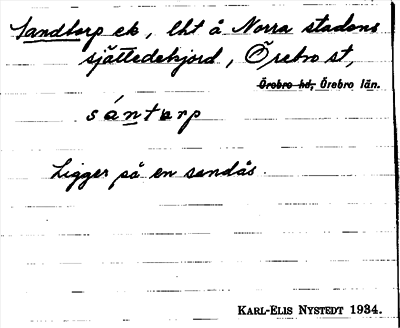 Sandtorp ek, lht å Norra stadens
sjättedehjord, Örebro st,
Örebro hd, Örebro län.
sántarp
Ligger på en sandås.
KARL-ELIS NYSTEDT 1934.